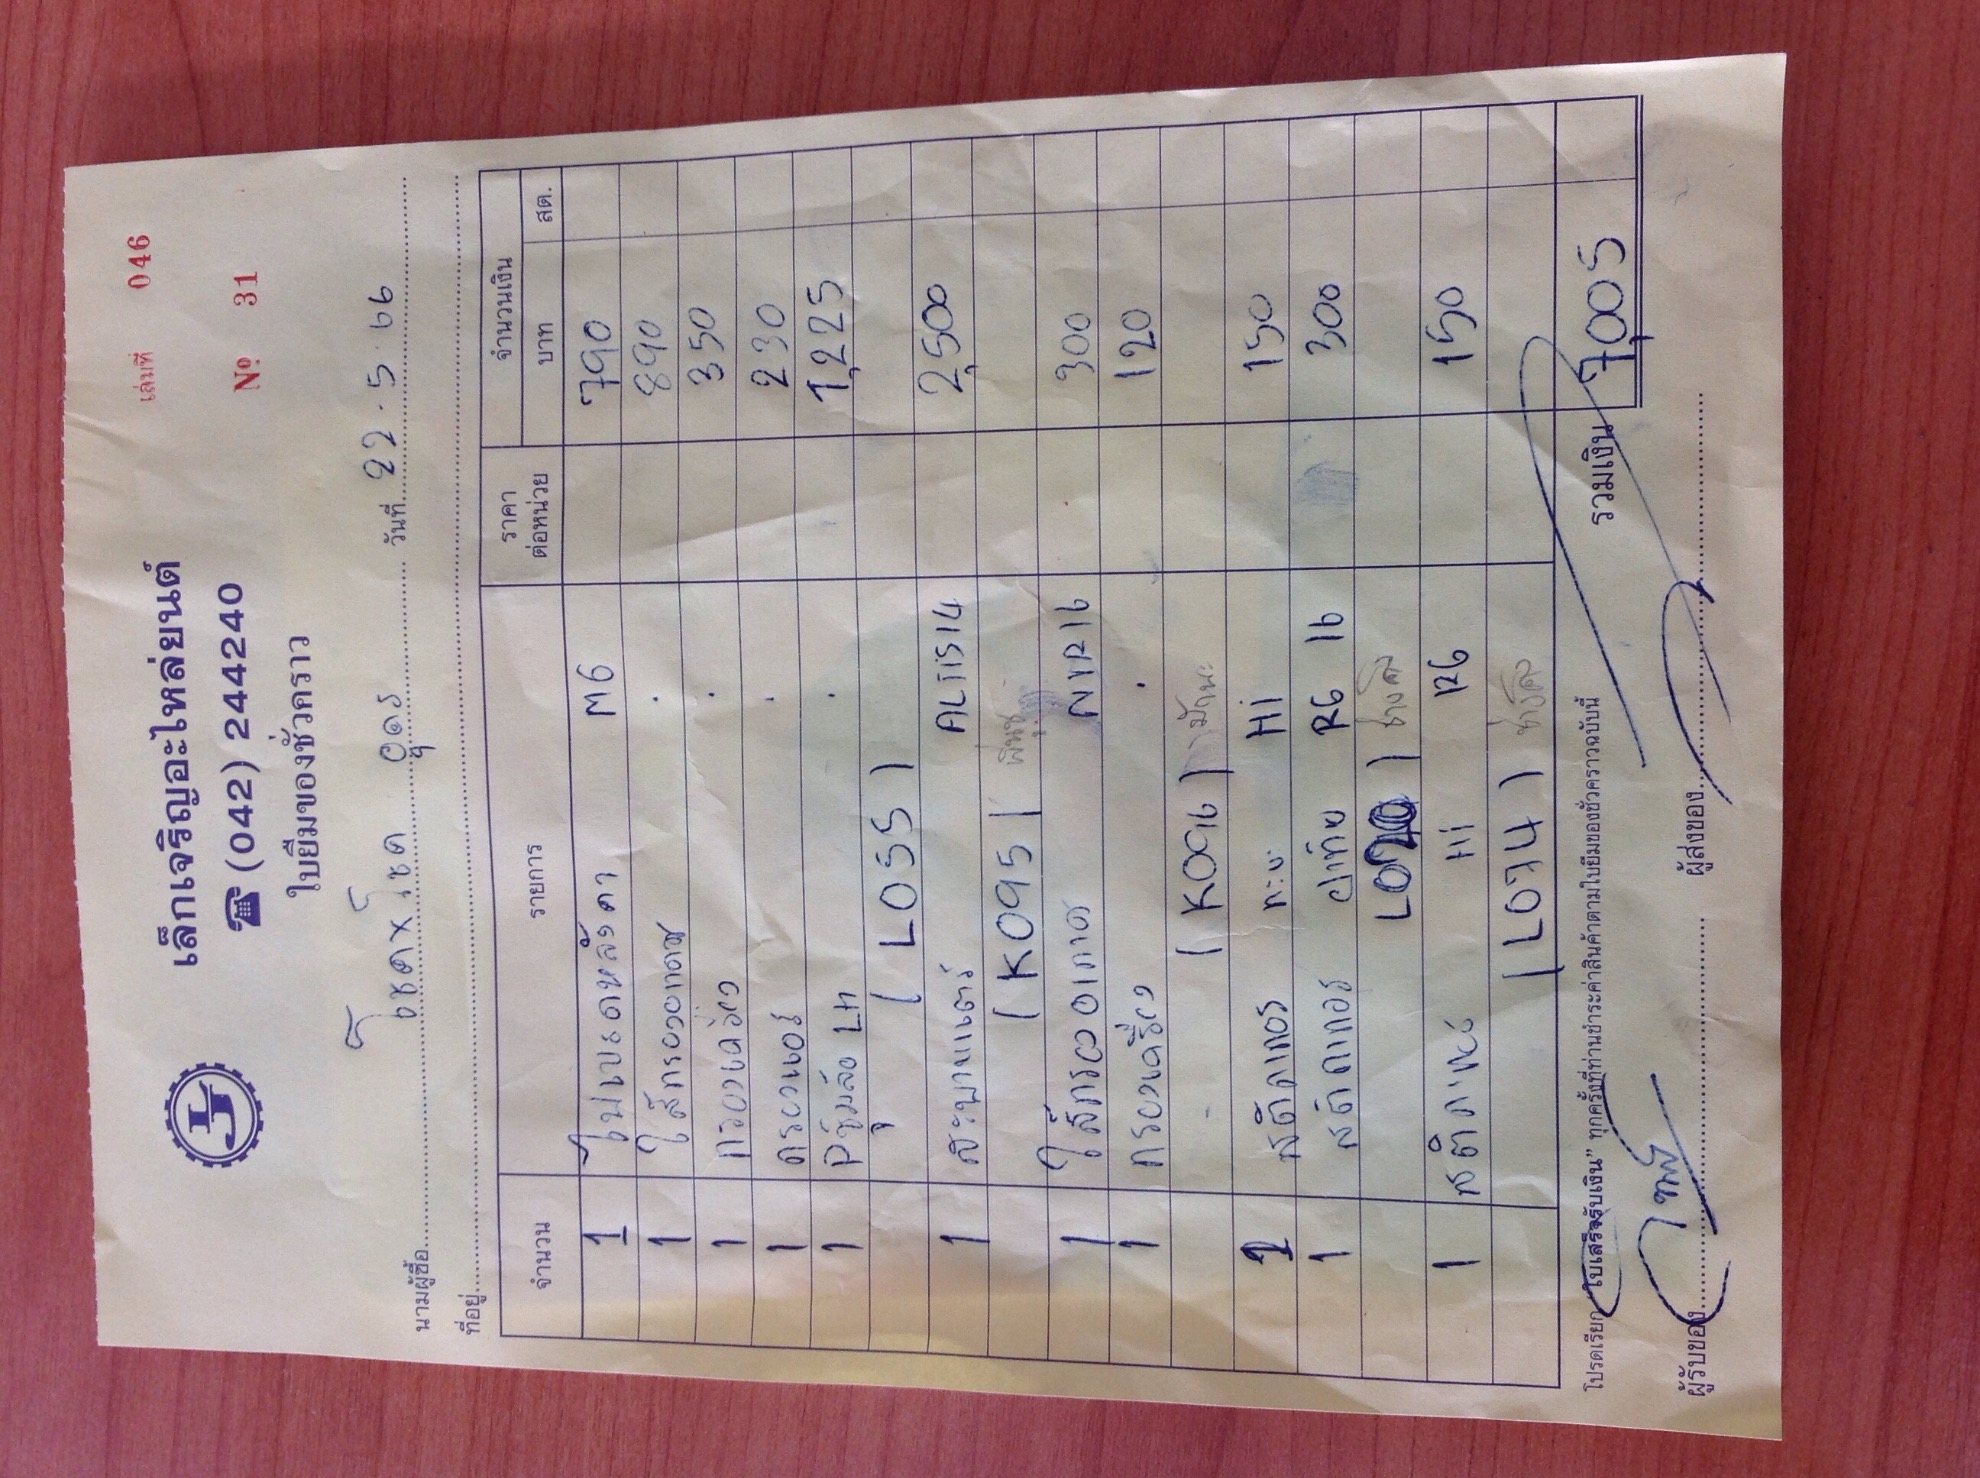 เล่มที่ 046
เล็กเจริญอะไหล่ยนต์
☎ (042) 244240
Nº 31
ใบยืมของชั่วคราว
นามผู้ซื้อ โชค อุดร วันที่ 22.5.66
ที่อยู่
จำนวน รายการ ราคาต่อหน่วย จำนวนเงิน
บาท สต.
1 M6 790
1 ไส้กรองอากาศ . 890
1 กรองเครื่อง . 350
1 กรองแอร์ . 230
1 LH . 1,225
( L055 )
1 ALTIS14 2,500
( K095 )
1 ไส้กรองอากาศ NIR16 300
1 กรองเครื่อง . 120
( K096 )
สติกเกอร์ Hi 150
1 สติกเกอร์ ฝาท้าย R6 16 300
1 Hi R6 150
( L074 )
รวมเงิน 7,005
โปรดเรียก "ใบเสร็จรับเงิน" ทุกครั้งที่ท่านชำระค่าสินค้าตามใบยืมของชั่วคราวฉบับนี้
ผู้รับของ ผู้ส่งของ